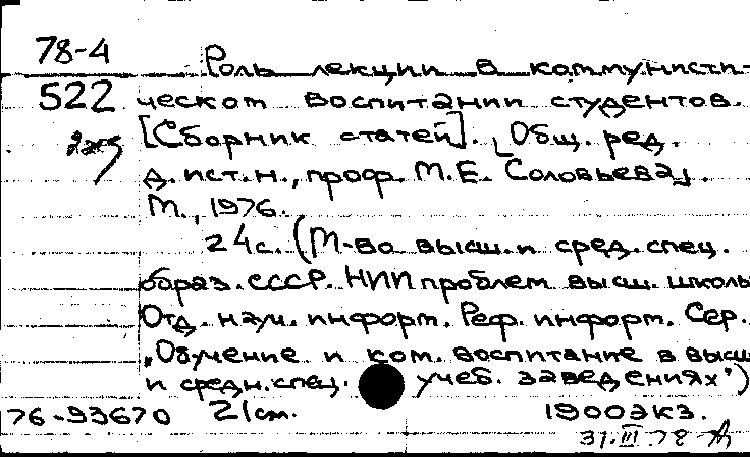 78-4
522
2 экз
Роль лекции в коммунисти-
ческом воспитании студентов.
[Сборник статей]. [Общ. ред.
д. ист. н., проф. М.Е. Соловьева].
М., 1976.
24 с. (М-во высш. и сред. спец.
образ. СССР. НИИ проблем высш. школы
Отд. науч. информ. Реф. информ. Сер.
"Обучение и ком. воспитание в высш
и средн. спец. учеб. заведениях")
76-93670 21 см. 1900 экз.
31.III.78